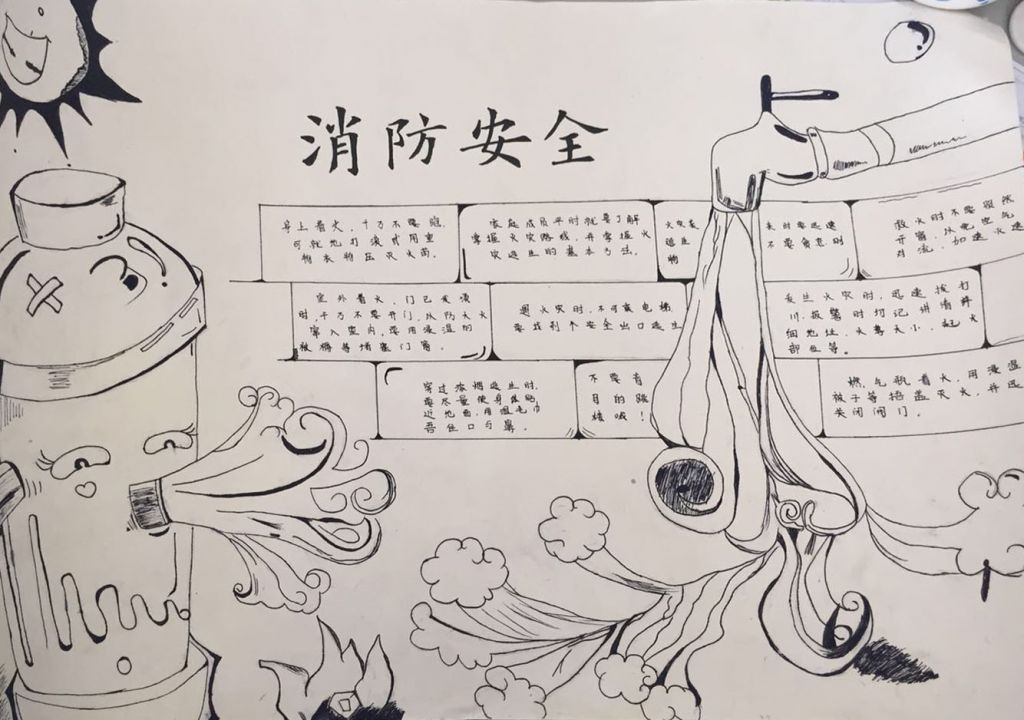 消防安全
身上着火，千万不要跑，
可就地打滚或用重
物衣物压灭火苗。
家庭成员平时就要了解
掌握火灾路线，并掌握火
灾逃生的基本方法。
火灾袭
逃生
物
来时要迅速
不要贪恋财
救火时不要贸然
开窗，以免空气
对流，加速火速
室外着火，门已发烫
时，千万不要开门，以防大火
窜入室内，要用浸湿的
被褥等堵塞门窗。
遇火灾时，不可乘电梯，
要找到个安全出口逃生
发生火灾时，迅速拨打
报警时切记讲清详
细地址，火势大小，起火
部位等。
穿过浓烟逃生时，
要尽量使身体贴
近地面，用湿毛巾
捂住口与鼻。
不要盲
目的跳
楼喊！
燃气瓶着火，用浸湿
被子等捂盖灭火，并迅
关闭阀门。